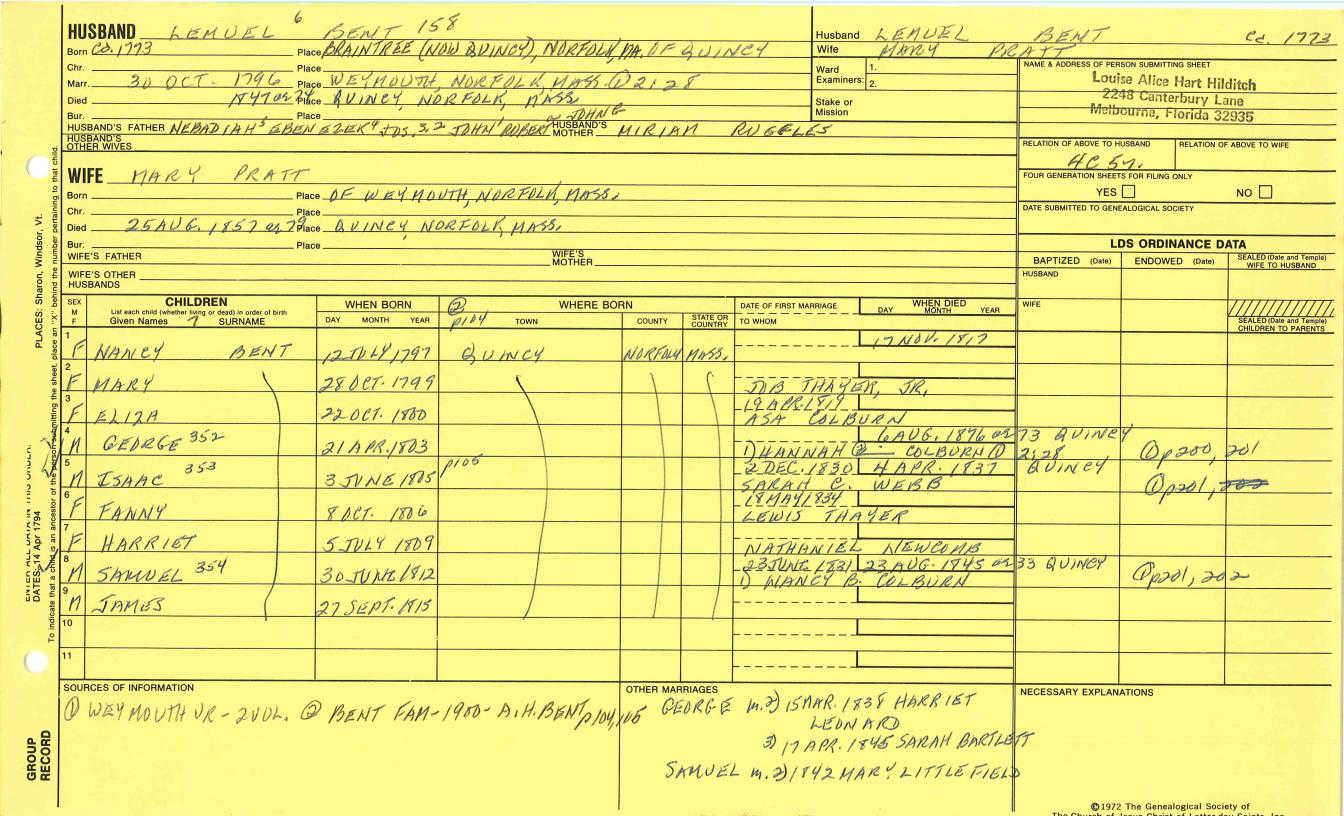 HUSBAND LEMUEL 6 BENT 158
Born Ca. 1773 Place BRAINTREE (NOW QUINCY), NORFOLK, MA. OF QUINCY
Chr. Place
Marr. 30 OCT. 1796 Place WEYMOUTH, NORFOLK, MASS. ① 2:28
Died 1847 ae 74 Place QUINCY, NORFOLK, MASS
Bur. Place
HUSBAND'S FATHER NEBADIAH 5 EBENEZER 4 JOS. 3, 2 JOHN 1 ROBERT JOHN HUSBAND'S MOTHER MIRIAM RUGGLES
HUSBAND'S OTHER WIVES
Husband LEMUEL BENT Ca. 1773
Wife MARY PRATT
Ward Examiners: 1.
2.
Stake or Mission
NAME & ADDRESS OF PERSON SUBMITTING SHEET
Louise Alice Hart Hilditch
2248 Canterbury Lane
Melbourne, Florida 32935
RELATION OF ABOVE TO HUSBAND RELATION OF ABOVE TO WIFE
4C 5r.
FOUR GENERATION SHEETS FOR FILING ONLY
YES NO
DATE SUBMITTED TO GENEALOGICAL SOCIETY
WIFE MARY PRATT
Born Place OF WEYMOUTH, NORFOLK, MASS.
Chr. Place
Died 25 AUG. 1857 ae 79 Place QUINCY, NORFOLK, MASS.
Bur. Place
WIFE'S FATHER WIFE'S MOTHER
WIFE'S OTHER HUSBANDS
LDS ORDINANCE DATA
BAPTIZED (Date) ENDOWED (Date) SEALED (Date and Temple) WIFE TO HUSBAND
HUSBAND
WIFE
SEALED (Date and Temple) CHILDREN TO PARENTS
SEX M F
CHILDREN
List each child (whether living or dead) in order of birth
Given Names 7 SURNAME
WHEN BORN
DAY MONTH YEAR
② p104 WHERE BORN
TOWN COUNTY STATE OR COUNTRY
DATE OF FIRST MARRIAGE
TO WHOM
WHEN DIED
DAY MONTH YEAR
1 F NANCY BENT 12 JULY 1797 QUINCY NORFOLK MASS. 17 NOV. 1817
2 F MARY 28 OCT. 1799 JOB THAYER, JR.
3 F ELIZA 22 OCT. 1800 19 APR. 1819 ASA COLBURN
4 M GEORGE 352 21 APR. 1803 6 AUG. 1876 ae 73 QUINCY
1) HANNAH ② COLBURN ① 2:28 ② p200, 201
5 M ISAAC 353 3 JUNE 1805 p105 2 DEC. 1830 4 APR. 1837 QUINCY
SARAH C. WEBB ② p201, 202
6 F FANNY 8 OCT. 1806 18 MAY 1834 LEWIS THAYER
7 F HARRIET 5 JULY 1809 NATHANIEL NEWCOMB
8 M SAMUEL 354 30 JUNE 1812 23 JUNE 1831 23 AUG. 1845 ae 33 QUINCY
1) NANCY B. COLBURN ② p201, 202
9 M JAMES 27 SEPT. 1815
10
11
SOURCES OF INFORMATION
① WEYMOUTH VR - 2 VOL. ② BENT FAM - 1900 - A.H. BENT p104, 105
OTHER MARRIAGES
GEORGE m. 2) 15 MAR. 1838 HARRIET
LEONARD
3) 17 APR. 1845 SARAH BARTLETT
SAMUEL m. 2) 1842 MARY LITTLEFIELD
NECESSARY EXPLANATIONS
PLACES: Sharon, Windsor, Vt.
ENTER ALL DATA IN THIS ORDER:
DATES: 14 Apr 1794
To indicate that a child is an ancestor of the person submitting the sheet, place an "X" behind the number pertaining to that child.
GROUP RECORD
©1972 The Genealogical Society of
The Church of Jesus Christ of Latter-day Saints, Inc.